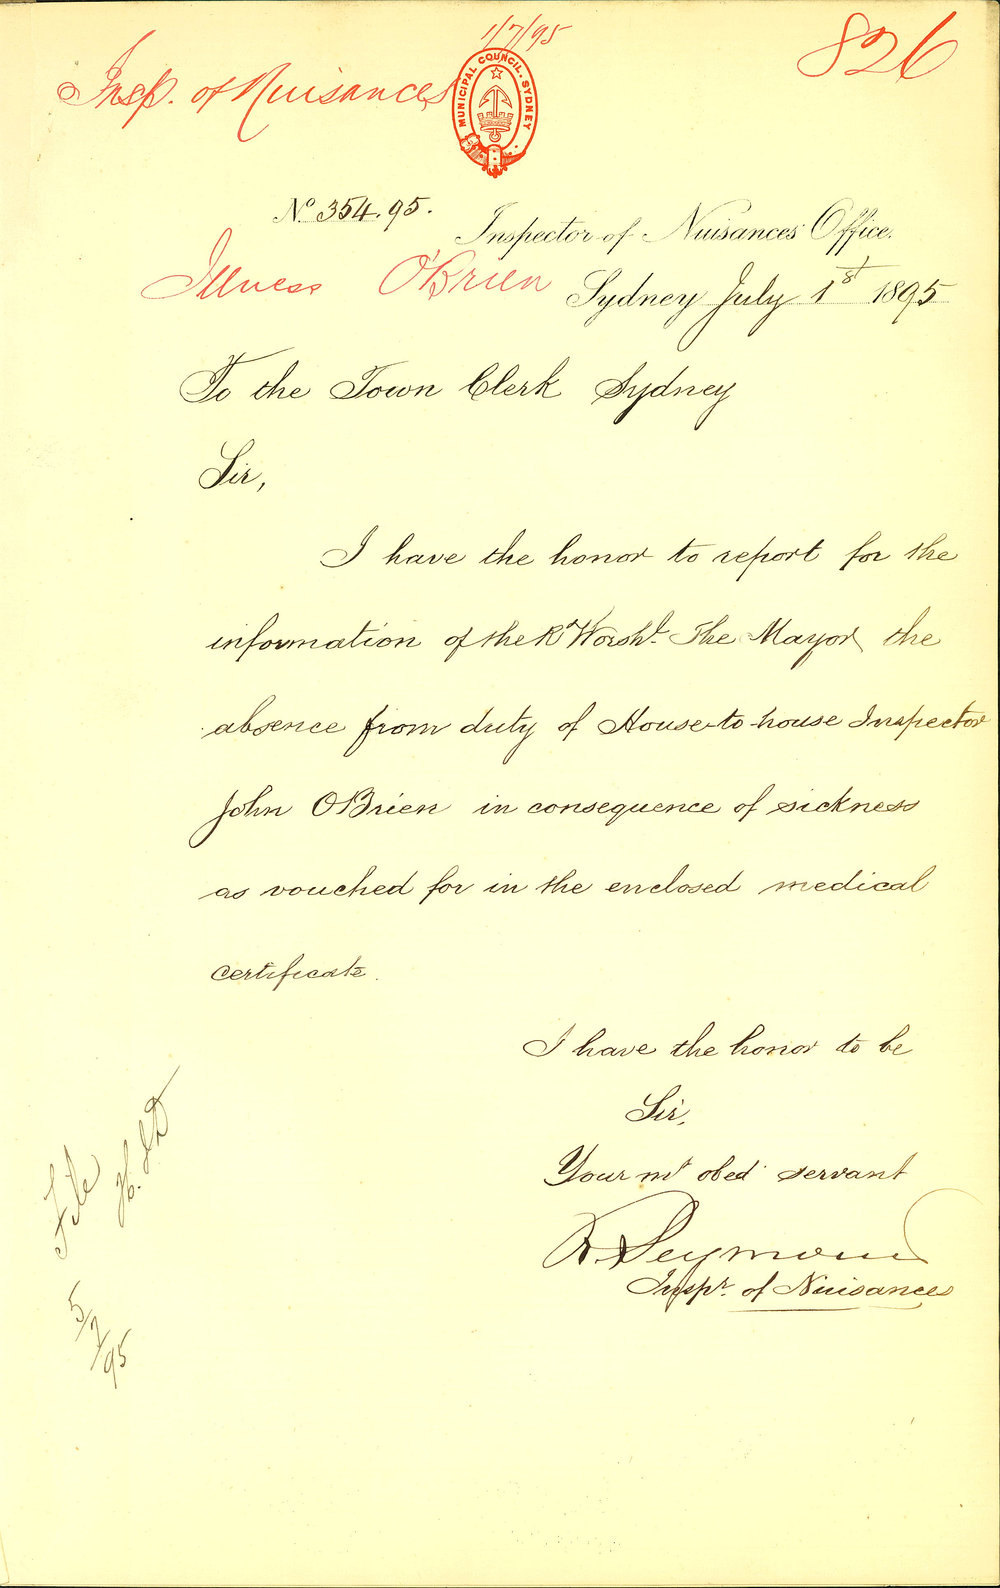 1/7/95
826
Insp. of Nuisances
MUNICIPAL COUNCIL. SYDNEY
No. 354.95.
Inspector of Nuisances Office.
Illness O'Brien
Sydney July 1st 1895
To the Town Clerk Sydney
Sir,
I have the honor to report for the
information of the Rt Worshl. The Mayor the
absence from duty of House-to-house Inspector
John O'Brien in consequence of sickness
as vouched for in the enclosed medical
certificate.
I have the honor to be
Sir,
Your mt obed servant
R. Seymour
Inspr. of Nuisances
File
5/7/95